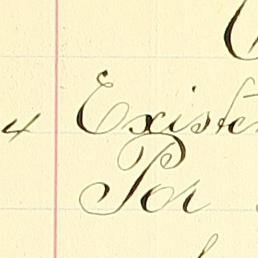 4 Existen
Por